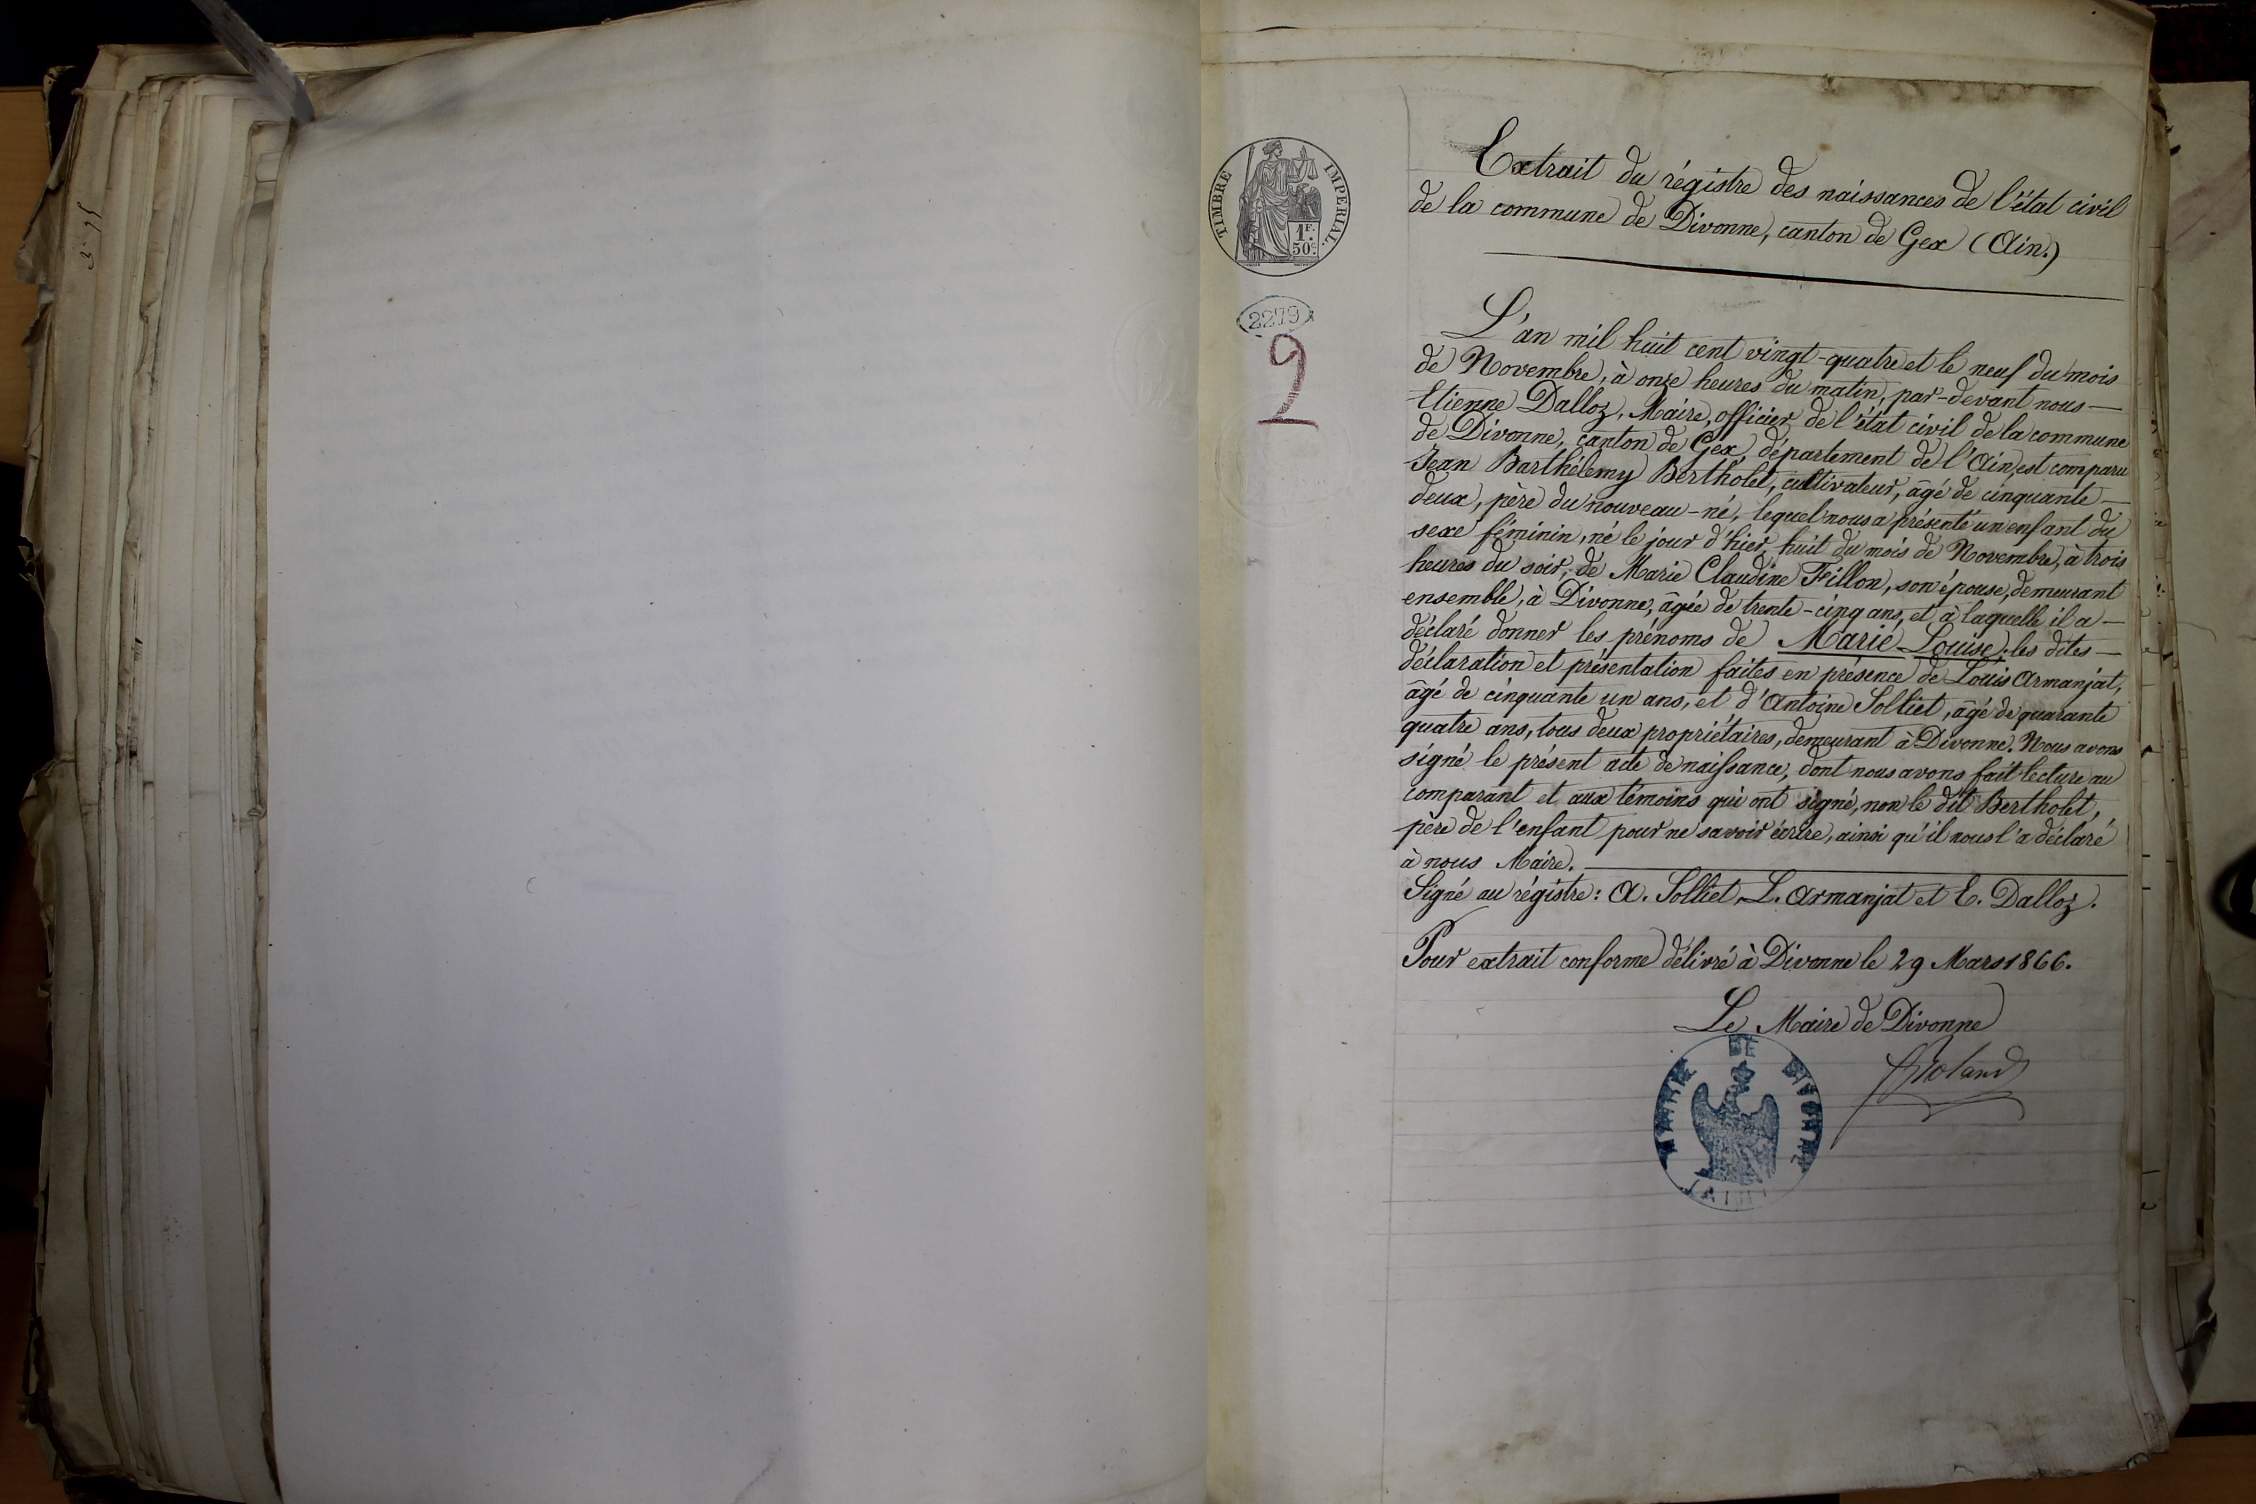 TIMBRE IMPERIAL.
1F.
50c.
2279
9
Extrait du régistre des naissances de l'état civil
de la commune de Divonne, canton de Gex (Ain.)
L'an mil huit cent vingt-quatre et le neuf du mois
de Novembre, à onze heures du matin, par-devant nous —
Etienne Dalloz, Maire, officier de l'état civil de la commune
de Divonne, canton de Gex, département de l'Ain, est comparu
Jean Barthélemy Bertholet, cultivateur, âgé de cinquante —
deux, père du nouveau-né, lequel nous a présenté un enfant du
sexe féminin, né le jour d'hier, huit du mois de Novembre, à trois
heures du soir, de Marie Claudine Fillon, son épouse, demeurant
ensemble, à Divonne, âgée de trente-cinq ans, et à laquelle il a —
déclaré donner les prénoms de Marie Louise; les dites —
déclaration et présentation faites en présence de Louis Armanjat,
âgé de cinquante un ans, et d'Antoine Solliet, âgé de quarante
quatre ans, tous deux propriétaires, demeurant à Divonne. Nous avons
signé le présent acte de naissance, dont nous avons fait lecture au
comparant et aux témoins qui ont signé, non le dit Bertholet,
père de l'enfant pour ne savoir écrire, ainsi qu'il nous l'a déclaré
à nous Maire.
Signé au régistre: A. Solliet, L. Armanjat et E. Dalloz.
Pour extrait conforme délivré à Divonne le 29 Mars 1866.
Le Maire de Divonne
MAIRIE DE DIVONNE